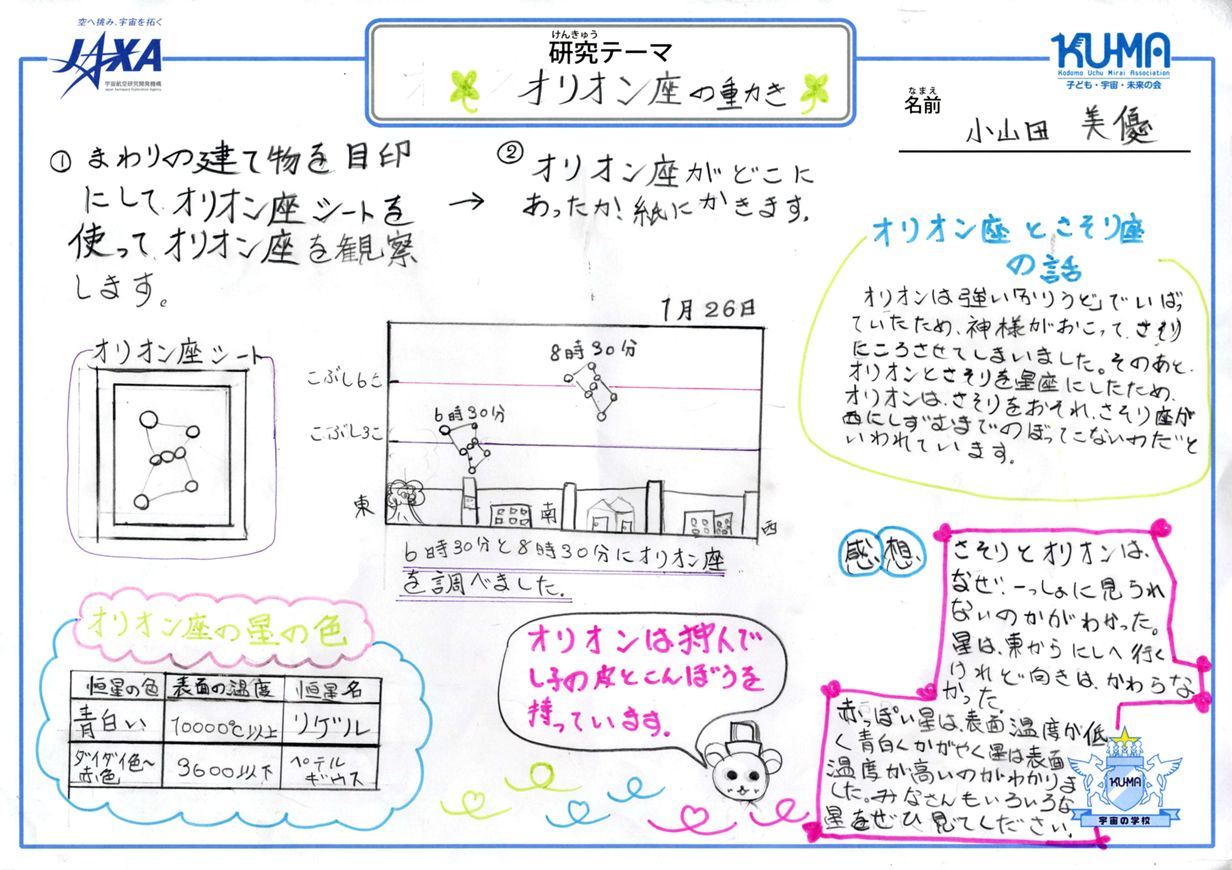 空へ挑み、宇宙を拓く
JAXA
宇宙航空研究開発機構
Japan Aerospace Exploration Agency
けんきゅう
研究テーマ
オリオン座の重かき
KU-MA
Kodomo Uchu Mirai Association
子ども・宇宙・未来の会
なまえ
名前
小山田 美優
① まわりの建て物を目印
にして オリオン座シートを
使って オリオン座を観察
します。
→
② オリオン座がどこに
あったか!紙にかきます。
オリオン座シート
1月26日
こぶし6こ
こぶし3こ
8時30分
6時30分
東
南
西
6時30分と8時30分にオリオン座
を調べました。
オリオン座とさそり座
の話
オリオンは強い「かりうど」でいばっ
ていたため、神様がおこって、さそり
にころさせてしまいました。そのあと、
オリオンとさそりを星座にしたため、
オリオンは、さそりをおそれ、さそり座が
西にしずむまでのぼってこないわだと
いわれています。
オリオン座の星の色
恒星の色 表面の温度 恒星名
青白い 10000℃以上 リゲル
ダイダイ色~
赤色
3600以下
ペテル
ギウス
オリオンは狩んで
し子の皮とこんぼうを
持っています。
感想
さそりとオリオンは、
なぜ一っしょに見られ
ないのかがわかった。
星は、東からにしへ行く
けれど向きは、かわらな
かった。
赤っぽい星は、表面温度が低
く青白くかがやく星は表面
温度が高いのがわかりま
した。みなさんもいろいろな
星をぜひ見てください。
KU-MA
宇宙の学校